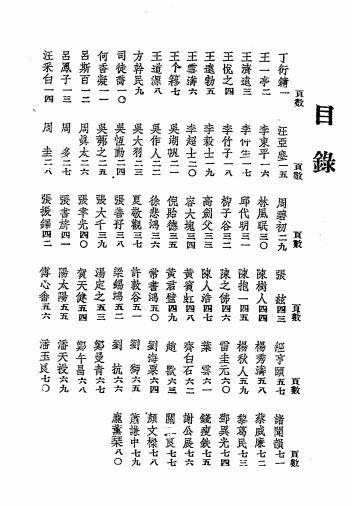 目錄
頁數
丁衍鏞一
王一亭二
王濟遠三
王悅之四
王遠勃五
王雪濤六
王个簃七
王道源八
方幹民九
司徒喬一〇
何香凝一一
呂斯百一二
呂鳳子一三
汪采白一四
頁數
汪亞塵一五
李東平一六
李竹子一八
李毅士一九
李超士二〇
吳湖帆二一
吳作人二二
吳大羽二三
吳恆勤二四
吳茀之二五
周真太二六
周多二七
周圭二八
頁數
周碧初二九
林風眠三〇
邱代明三一
柳子谷三二
高劍父三三
容大塊三四
倪貽德三五
徐悲鴻三六
夏敬觀三七
張善孖三八
張大千三九
張聿光四〇
張書旂四一
張振鐸四二
頁數
張弦四三
陳樹人四四
陳抱一四五
陳之佛四六
陳人浩四七
黃賓虹四八
黃君璧四九
常書鴻五〇
許敦谷五一
梁錫鴻五二
湯定之五三
賀天健五四
陽太陽五五
傅心畬五六
頁數
經亨頤五七
楊秀濤五八
楊秋人五九
雷圭元六〇
葉雲六一
齊白石六二
趙獸六三
劉海粟六四
劉獅六五
劉抗六六
鄭曼青六七
鄭午昌六八
潘天授六九
潘玉良七〇
頁數
諸聞韻七一
蔡威廉七二
黎葛民七三
鄧異光七四
錢瘦鐵七五
謝公展七六
關良七七
顏文樑七八
蕭謙中七九
龐薰琹八〇